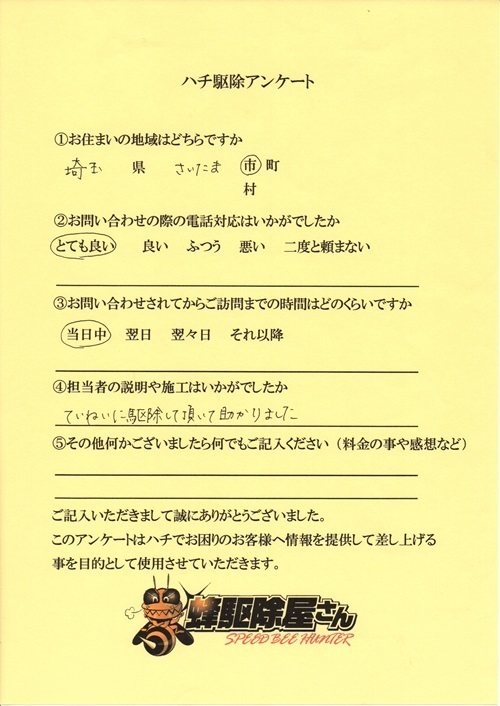 ハチ駆除アンケート
①お住まいの地域はどちらですか
埼玉 県 さいたま 市 町
村
②お問い合わせの際の電話対応はいかがでしたか
とても良い 良い ふつう 悪い 二度と頼まない
③お問い合わせされてからご訪問までの時間はどのくらいですか
当日中 翌日 翌々日 それ以降
④担当者の説明や施工はいかがでしたか
ていねいに駆除して頂いて助かりました
⑤その他何かございましたら何でもご記入ください（料金の事や感想など）
ご記入いただきまして誠にありがとうございました。
このアンケートはハチでお困りのお客様へ情報を提供して差し上げる
事を目的として使用させていただきます。
蜂駆除屋さん
SPEED BEE HUNTER